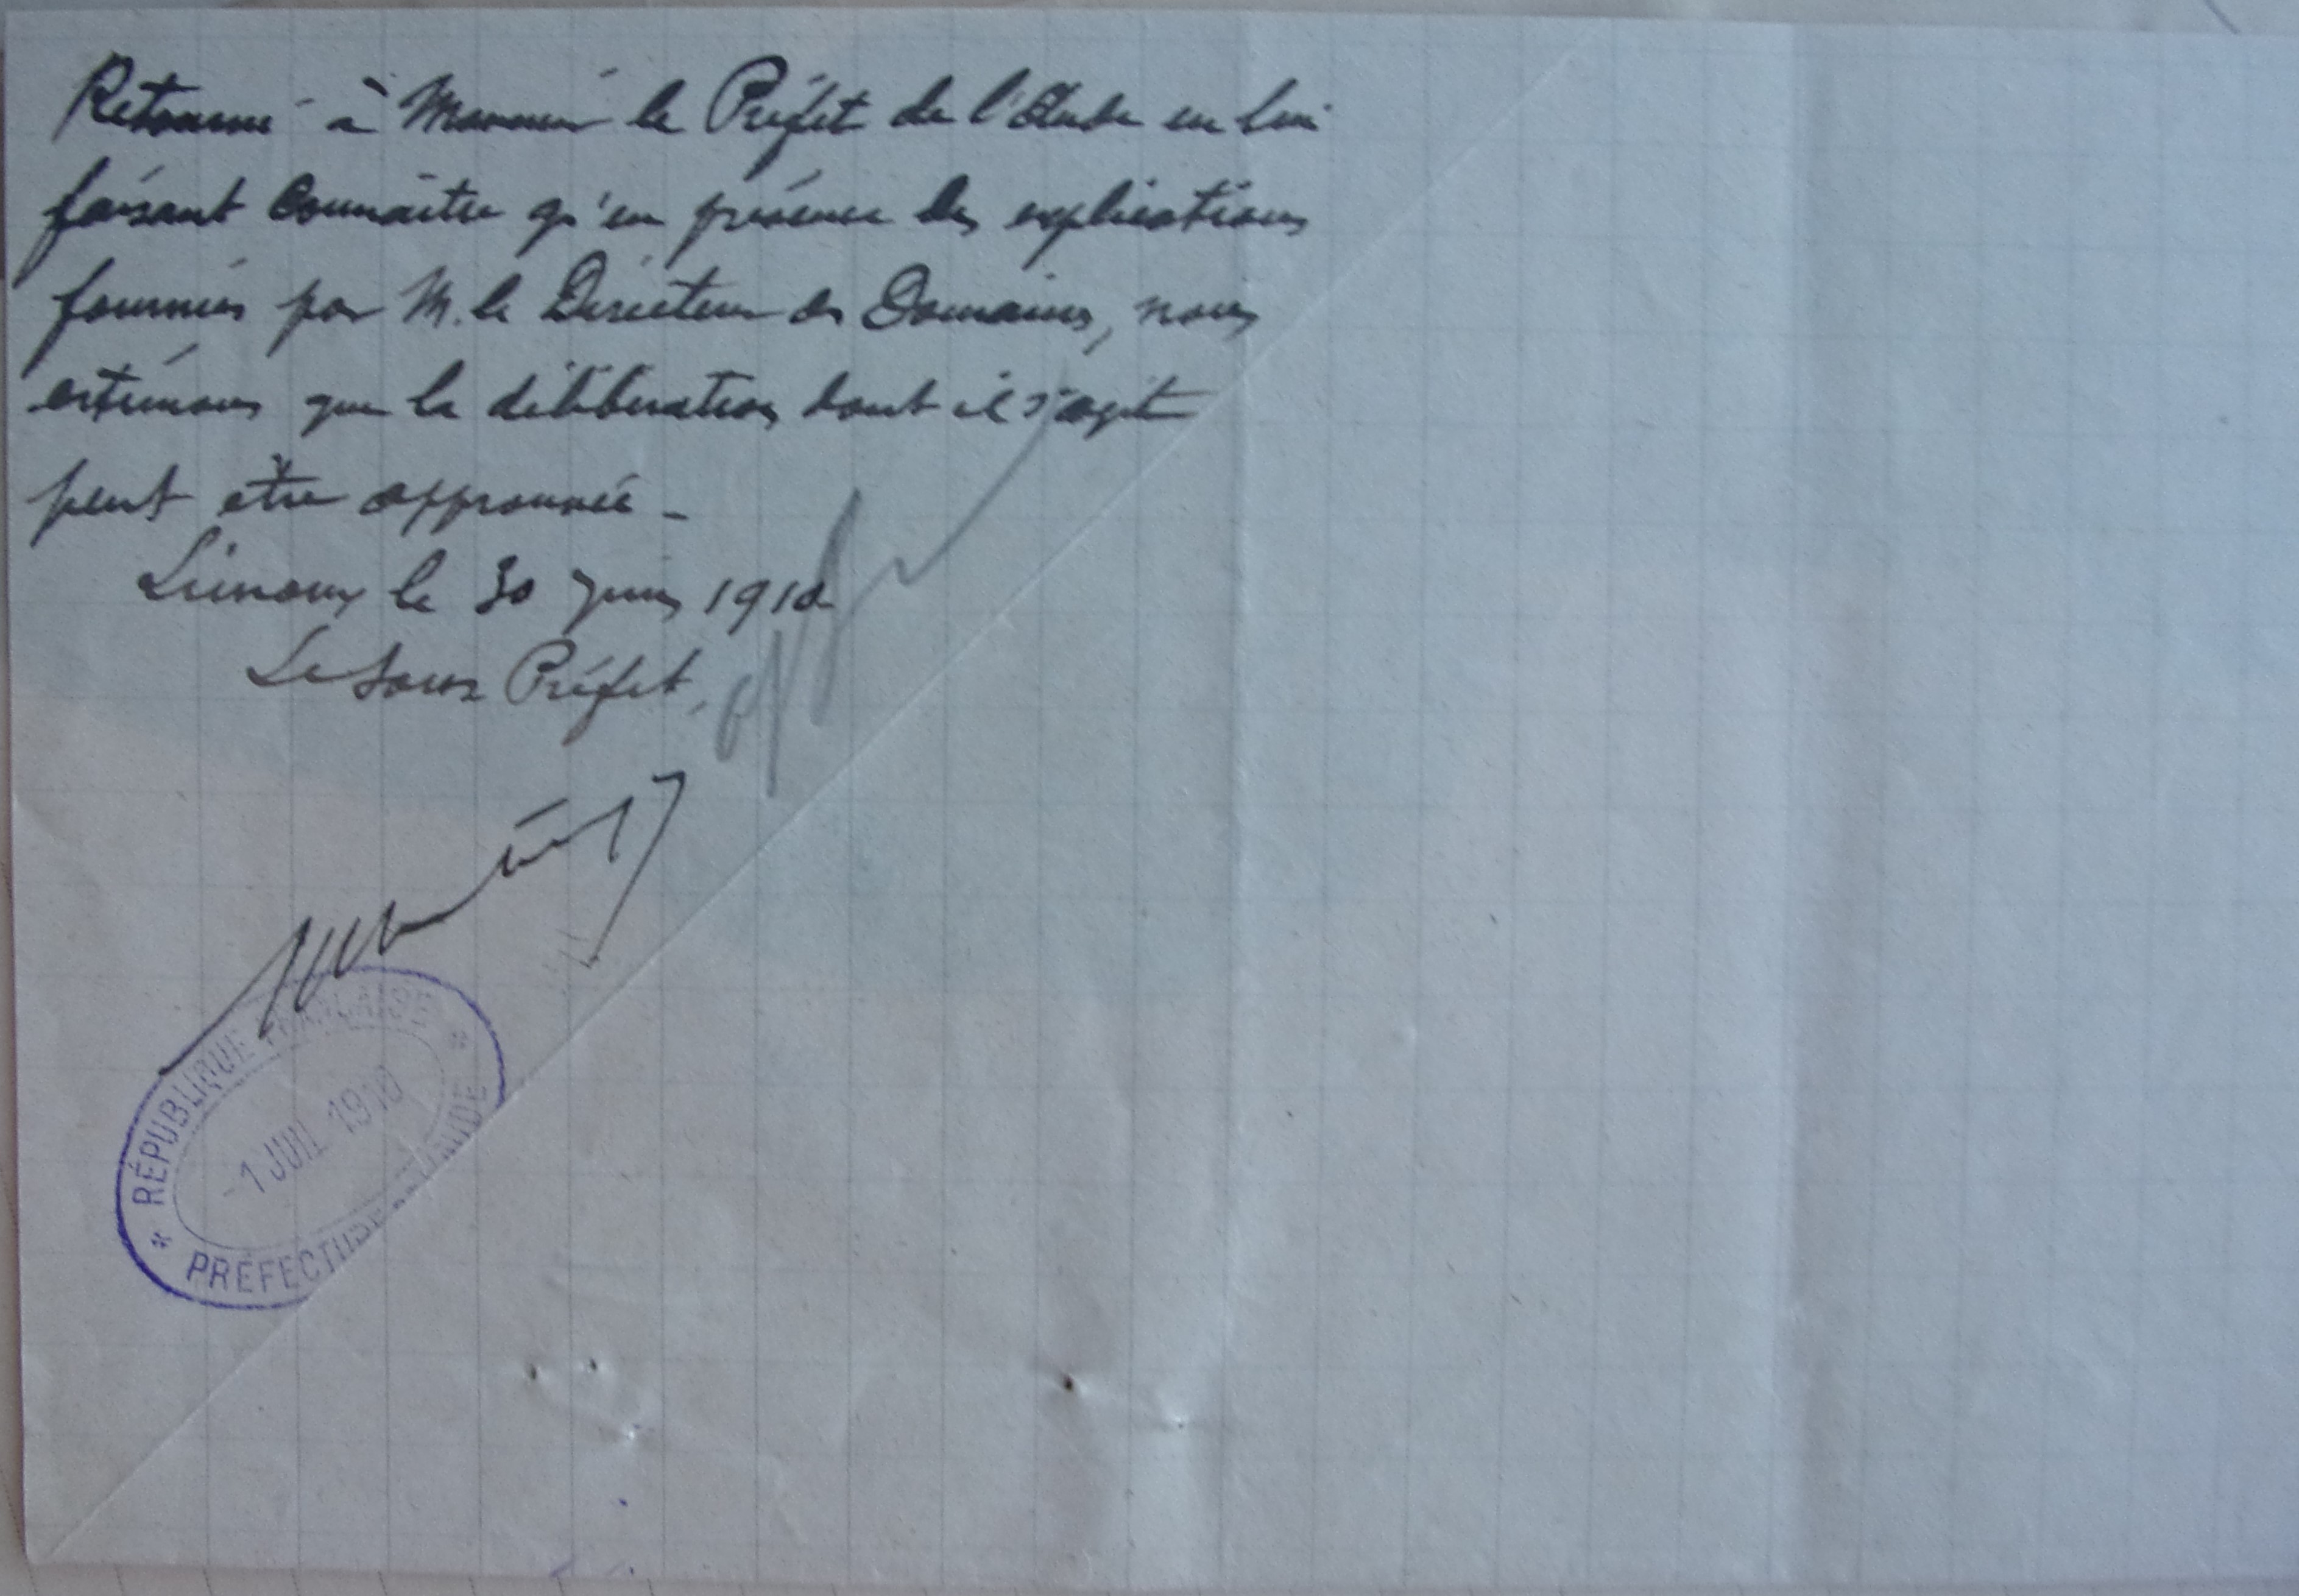 Retourné à Monsieur le Préfet de l'Aude en lui
faisant connaître qu'en présence des explications
fournies par M. le Directeur des Domaines, nous
estimons que la délibération dont il s'agit
peut être approuvée -
Limoux le 30 juin 1910
Le Sous Préfet,
RÉPUBLIQUE FRANÇAISE
-1 JUIL 1910
PRÉFECTURE DE L'AUDE